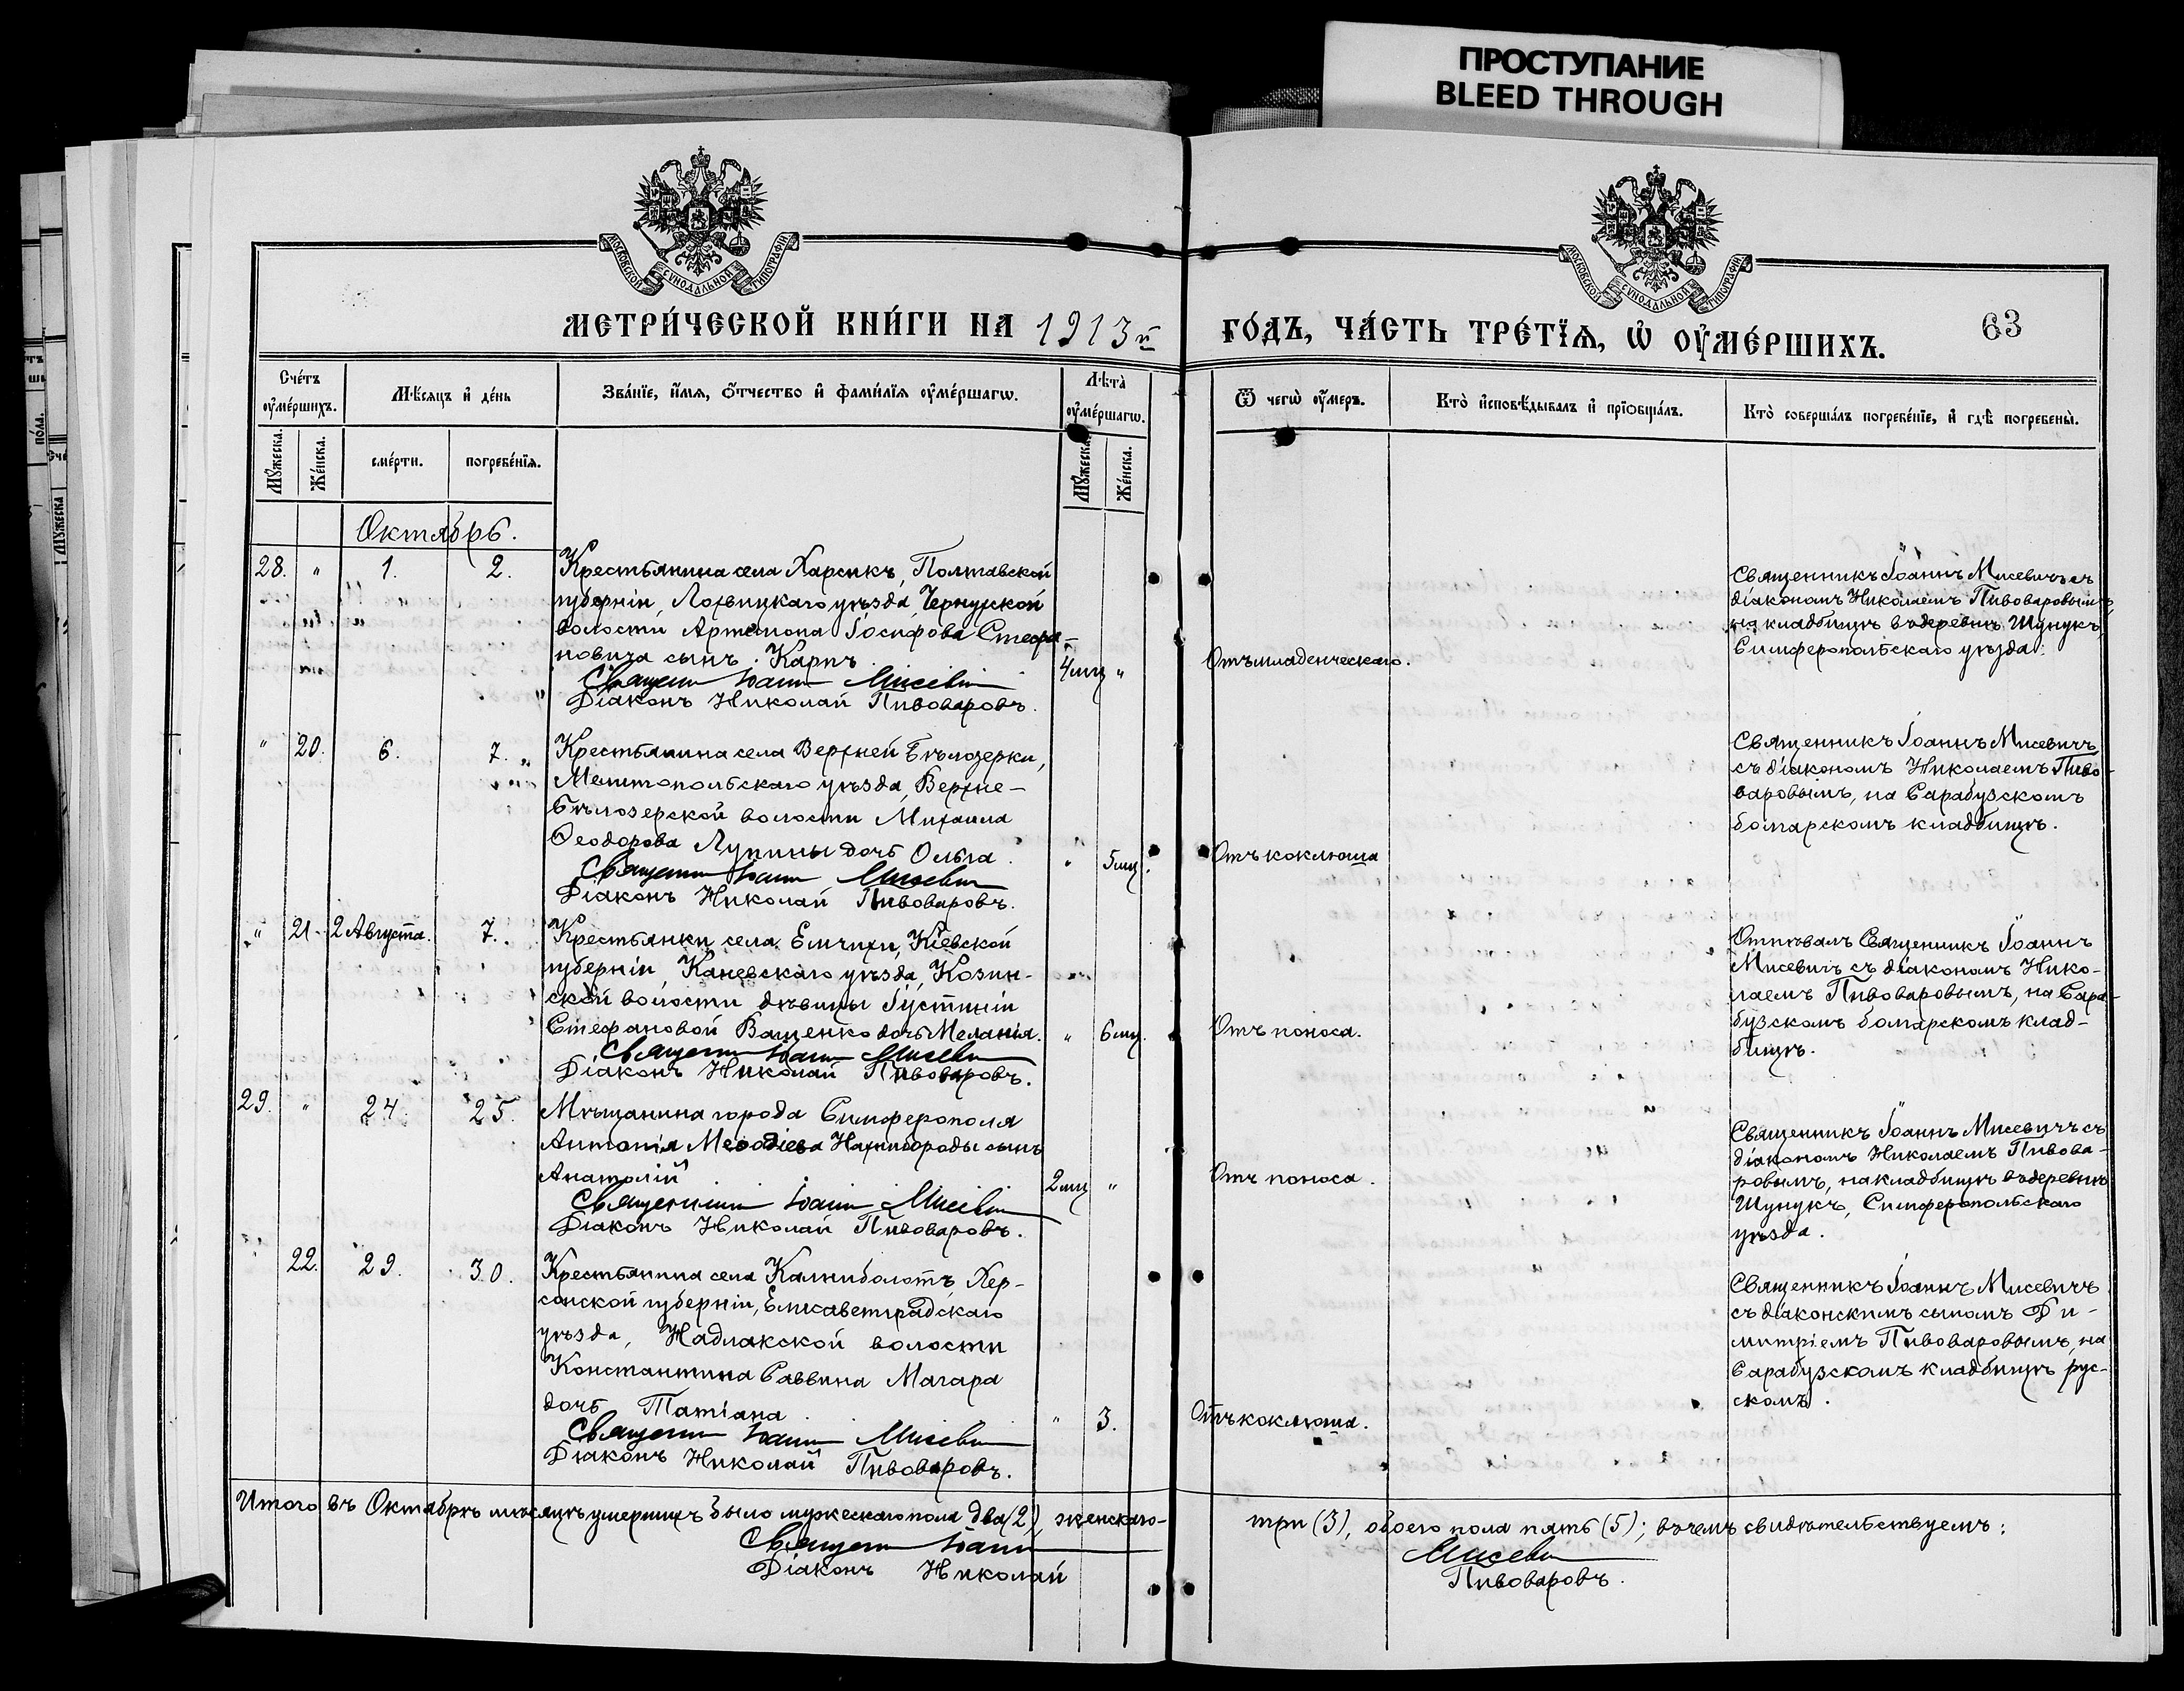 ПРОСТУПАНИЕ
BLEED THROUGH
МОСКОВСКОЙ СѴНОДАЛЬНОЙ ТИПОГРАФІИ
МОСКОВСКОЙ СѴНОДАЛЬНОЙ ТИПОГРАФІИ
МЕТРИ́ЧЕСКОЙ КНИ́ГИ НА 1913й
ГО́ДЪ, ЧА́СТЬ ТРЕ́ТЇѦ, Ѡ҆ ОУ҆МЕ́РШИХЪ.
63
Сче́тъ оу҆ме́ршихъ.
Мꙋ́жеска.
Же́нска.
Мѣ́сяцъ и҆ де́нь
сме́рти.
погребе́нїѧ.
Зва́нїе, и҆́мѧ, ѻ҆́тчество и҆ фами́лїѧ оу҆ме́ршагѡ.
Лѣ́та оу҆ме́ршагѡ.
Мꙋ́жеска.
Же́нска.
Ѿ чегѡ̀ оу҆́меръ.
Кто̀ и҆сповѣ́дывалъ и҆ прїѡбща́лъ.
Кто̀ соверша́лъ погребе́нїе, и҆ гдѣ̀ погребены̀.
Октябрь.
28. " 1. 2.
Крестьянина села Харсикъ, Полтавской
губерніи, Лохвицкаго уѣзда, Чернухской
волости Артемона Іосифова Стефа-
новича сынъ Карпъ.
4 мц "
Священ Іоаннъ Мисевич
Діаконъ Николай Пивоваровъ.
Отъ младенческаго.
Священникъ Іоаннъ Мисевичъ съ
діакономъ Николаемъ Пивоваровымъ,
на кладбищѣ въ деревнѣ Шунукъ,
Симферопольскаго уѣзда.
" 20. 6. 7.
Крестьянина села Верхней Бѣлозерки,
Мелитопольскаго уѣзда, Верхне-
Бѣлозерской волости Михаила
Ѳеодорова Лупины дочь Ольга.
" 5 мц.
Священ Іоаннъ Мисевич
Діаконъ Николай Пивоваровъ.
Отъ коклюша
Священникъ Іоаннъ Мисевичъ
съ діакономъ Николаемъ Пиво-
варовымъ, на Сарабузскомъ
болгарскомъ кладбищѣ.
" 21. 2 Августа. 7.
Крестьянки села Емчихи, Кіевской
губерніи, Каневскаго уѣзда, Козин-
ской волости дѣвицы Іустиніи
Стефановой Ващенко дочь Меланія.
" 6 мц.
Священ Іоаннъ Мисевич
Діаконъ Николай Пивоваровъ.
Отъ поноса.
Отпѣвалъ Священникъ Іоаннъ
Мисевичъ съ діакономъ Нико-
лаемъ Пивоваровымъ, на Сара-
бузскомъ болгарскомъ клад-
бищѣ.
29. " 24. 25.
Мѣщанина города Симферополя
Антонія Меѳодіева Нахибороды сынъ
Анатолій
2 мц "
Священник Іоаннъ Мисевич
Діаконъ Николай Пивоваровъ.
Отъ поноса.
Священникъ Іоаннъ Мисевичъ съ
діакономъ Николаемъ Пивова-
ровымъ, на кладбищѣ въ деревнѣ
Шунукъ, Симферопольскаго
уѣзда.
22. 29. 30.
Крестьянина села Калниболотъ, Хер-
сонской губерніи, Елисаветградскаго
уѣзда, Надлакской волости
Константина Саввина Магара
дочь Татіана
" 3.
Священ Іоаннъ Мисевич
Діаконъ Николай Пивоваровъ.
Отъ коклюша.
Священникъ Іоаннъ Мисевичъ
съ діаконскимъ сыномъ Ди-
митріемъ Пивоваровымъ, на
Сарабузскомъ кладбищѣ рус-
скомъ.
Итого въ Октябрѣ мѣсяцѣ умершихъ было мужескаго пола два (2), женскаго-
три (3), обоего пола пять (5); въ чемъ свидѣтельствуемъ:
Священ Іоаннъ Мисевич
Діаконъ Николай Пивоваровъ.